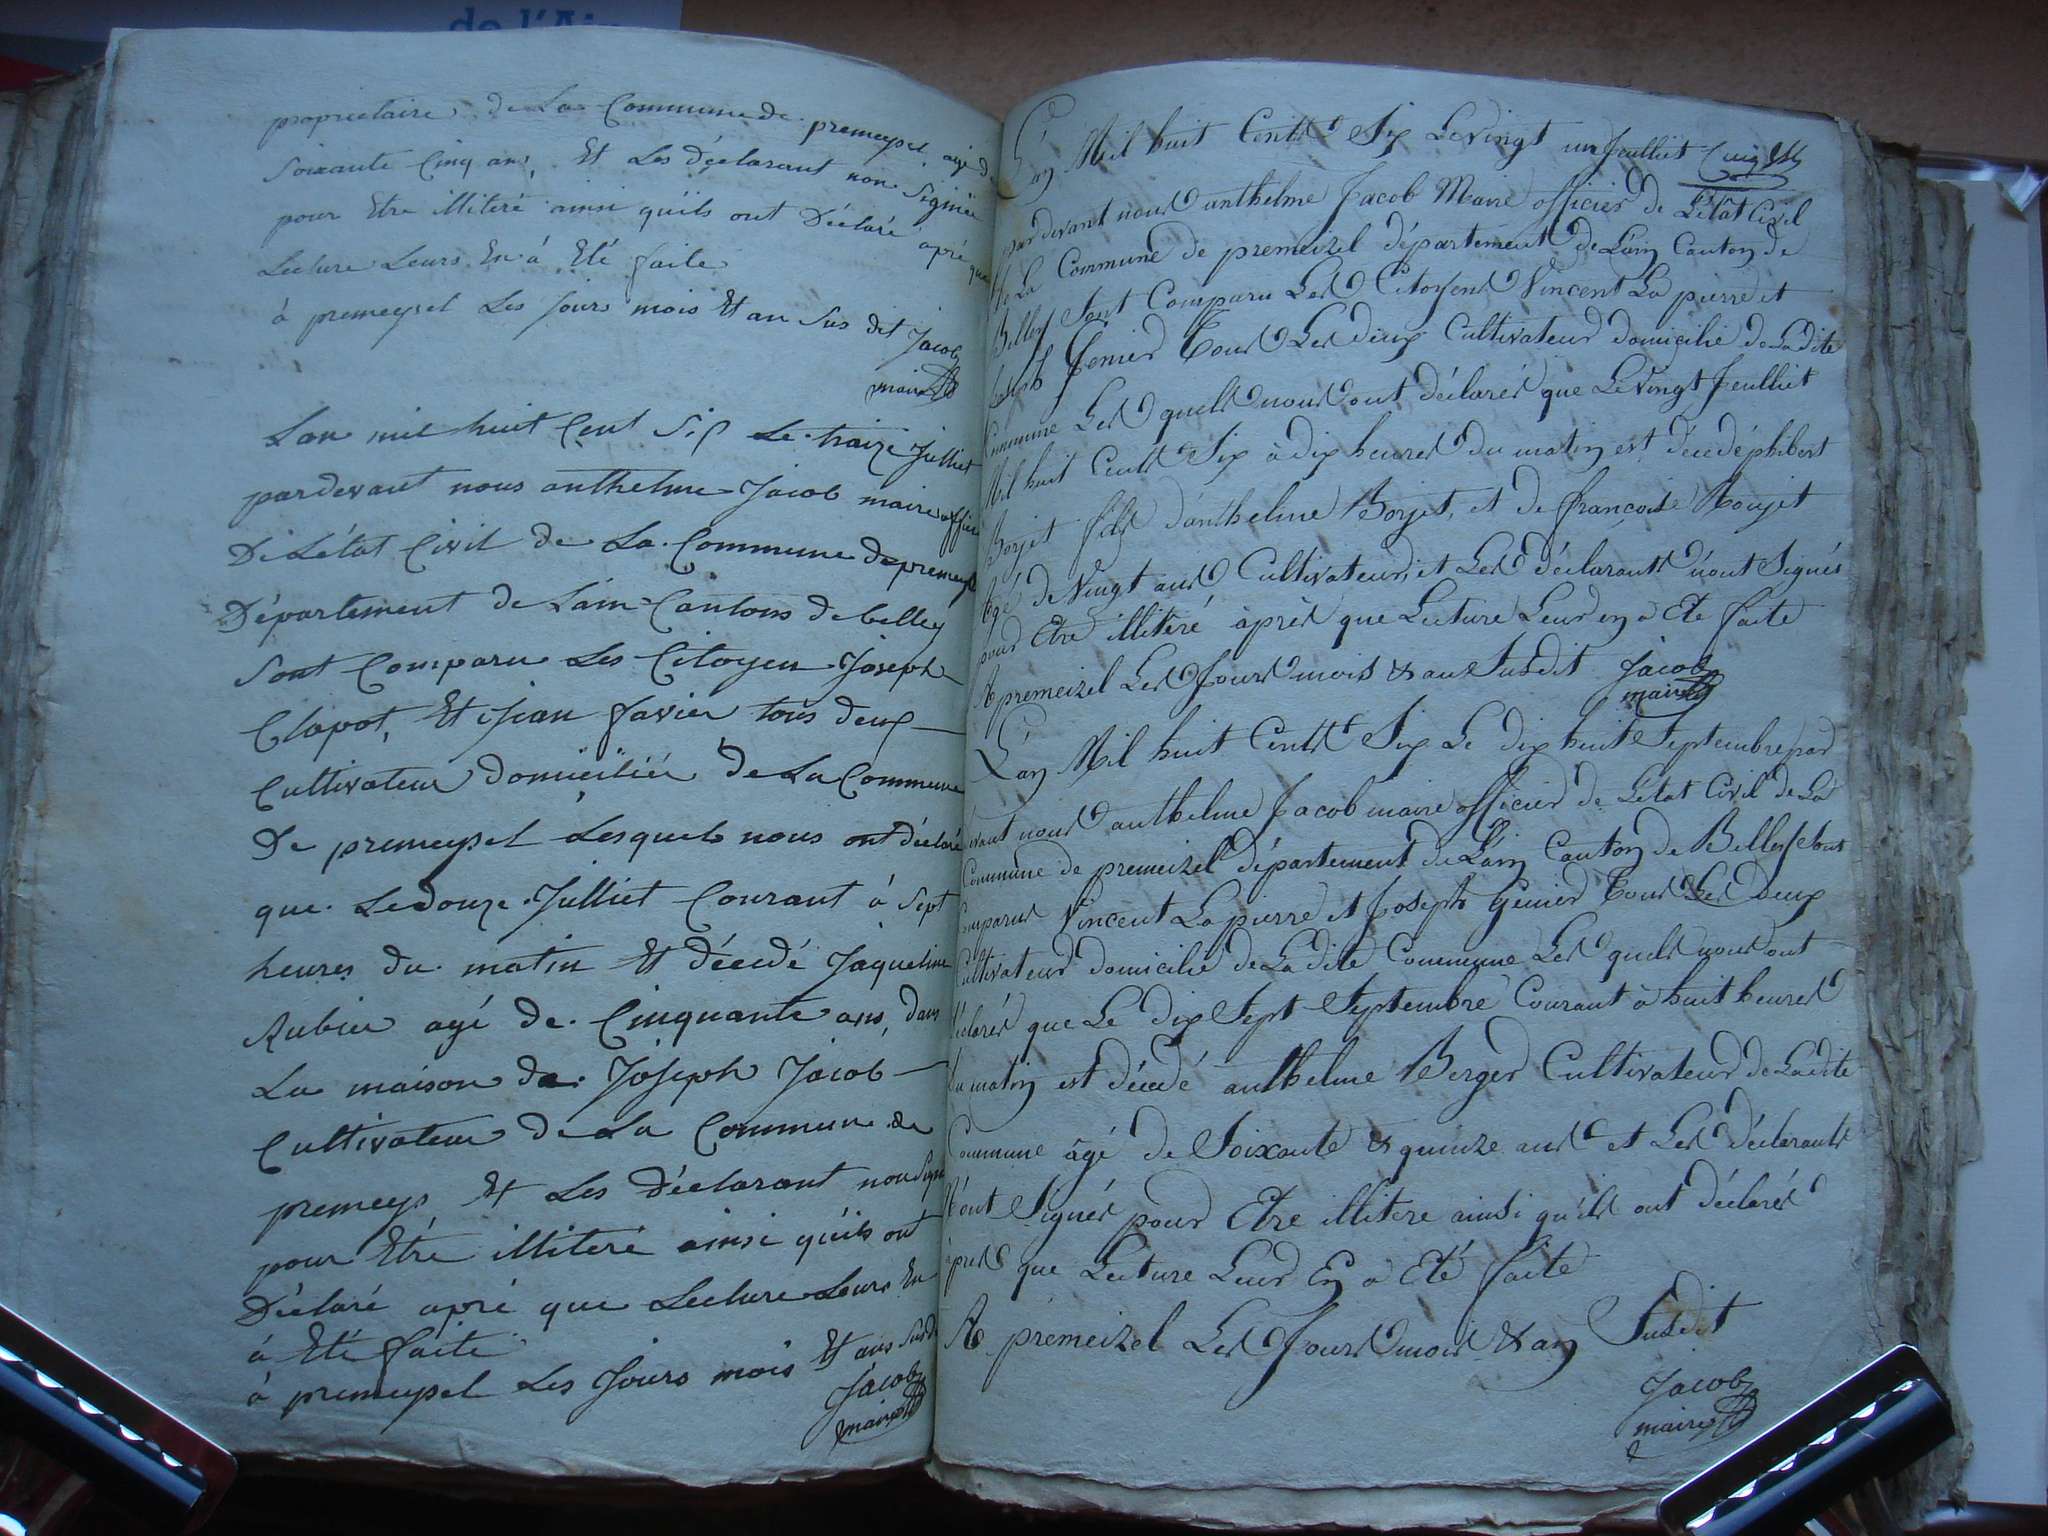 de l'Ain
propriétaire de La Commune de premeysel agé de
soixante Cinq ans, Et Les Déclarant non Signée
pour Etre illiteré ainsi quils ont Déclaré apré que
Lecture Leurs En á Eté faite
á premeysel Les Jours mois Et an Sus dit Jacob
maire
Lan mil huit Cent Six Le traize Julliet
pardevant nous anthelme Jacob maire officier
De Létat Civil de La Commune de premeysel
Département de Lain Cantons de belley
Sont Comparu Les Citoyen Joseph
Clapot, Et Jean favier tous deux
Cultivateur domiciliée De La Commune
De premeysel Lesquels nous ont déclaré
que Le douze Julliet Courant á Sept
heures du matin Et décédé Jaqueline
Rubier agé de Cinquante ans, dans
La maison de Joseph Jacob
Cultivateur de La Commune de
premeys Et Les Déclarant non Signe
pour Etre illiteré ainsi quils ont
Déclaré apré que Lecture Leurs En
á Eté faite
á premeysel Les Jours mois Et ans Susdit
Jacob
maire
L'an Mil huit Cents Six Le Vingt un Jeulliet
pardevant nous anthelme Jacob Maire officier de L'état Civil
de La Commune de premeizel département de L'ain Canton de
Belley Sont Comparu Les Citoyens Vincent La pierre et
Joseph Genier Tous Les deux Cultivateurs domicilié de La dite
Commune Les quels nous ont déclarés que Le Vingt Jeulliet
Mil huit Cents Six à dix heures du matin est décédé philibert
Borjet fils d'anthelme Borjet, et de françoise Roujet
Agé de Vingt ans Cultivateur, et Les déclarants n'ont Signés
pour Etre illiteré àprès que Lecture Leur en a Eté faite
A premeizel Les Jours mois & an Susdit Jacob
maire
L'an Mil huit Cents Six Le dix huit Septembre par
devant nous anthelme Jacob maire officier de L'état Civil de La
Commune de premeizel département de L'ain Canton de Belley Sont
Comparus Vincent La pierre et Joseph Genier Tous Les Deux
Cultivateurs domicilié de La dite Commune Les quels nous ont
déclarés que Le dix Sept Septembre Courant à huit heures
du matin est décédé anthelme Berger Cultivateur de La dite
Commune âgé de Soixante & quinze ans et Les Déclarants
N'ont Signés pour Etre illitere ainsi qu'ils ont déclarés
àprès que Lecture Leur En a Eté faite
A premeizel Les Jours mois & an Susdit
Jacob
maire